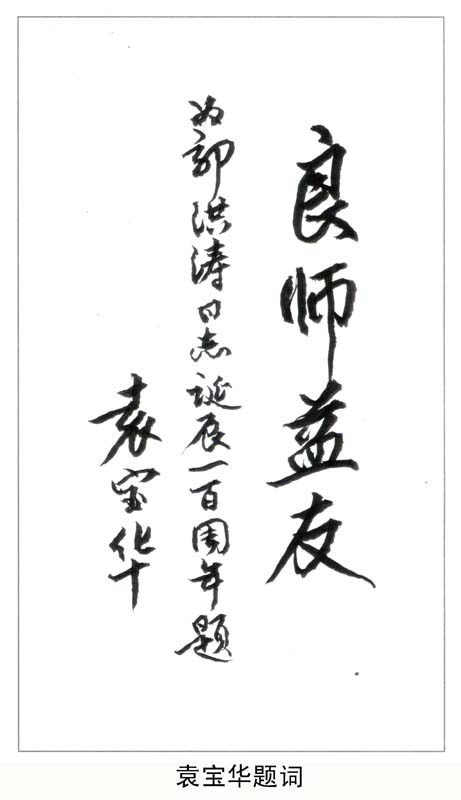 良师益友
为郭洪涛同志诞辰一百周年题
袁宝华
袁宝华题词